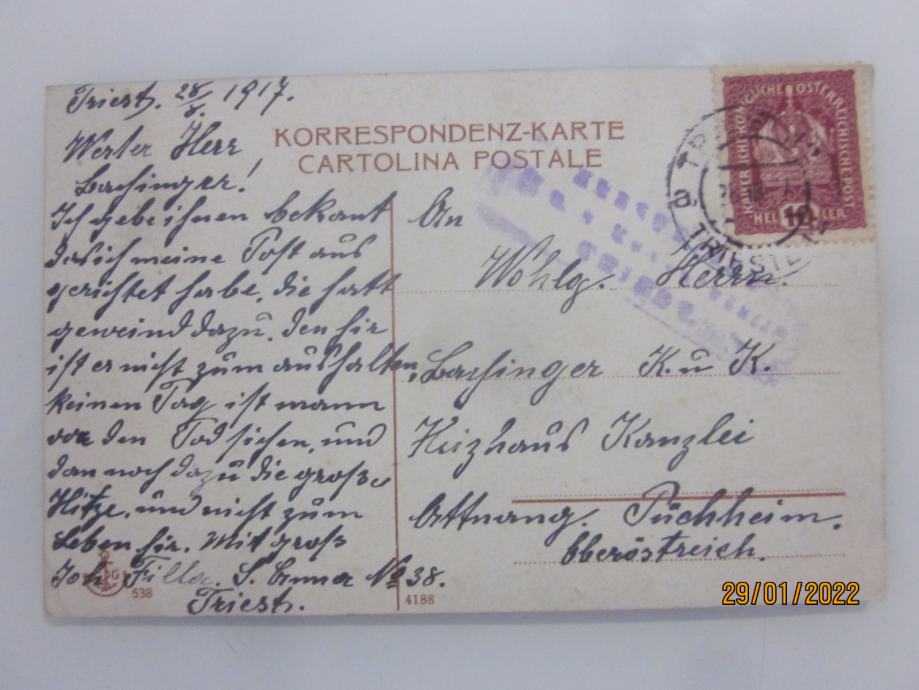 Triest. 28/8. 1917.
Werter Herr
Bachinger!
Ich gebe ihnen bekant
das ich meine Post aus
gerichtet habe, die hatt
geweind dazu. den hir
ist er nicht zum aushalten,
keinen Tag ist mann
vor den Tod sichen, und
dan noch dazu die große
Hitze, und nicht zum
Leben hir. Mit gruß
Joh. Filla. S. Anna № 38.
Triest.
538
KORRESPONDENZ-KARTE
CARTOLINA POSTALE
An
Wohlg. Herrn.
Bachinger K. u K.
Heizhaus Kanzlei
Attnang. Püchheim.
Oberöstreich.
4188
KAISERLICHE KÖNIGLICHE ÖSTERREICHISCHE POST
HELLER
TRIESTE
29/01/2022